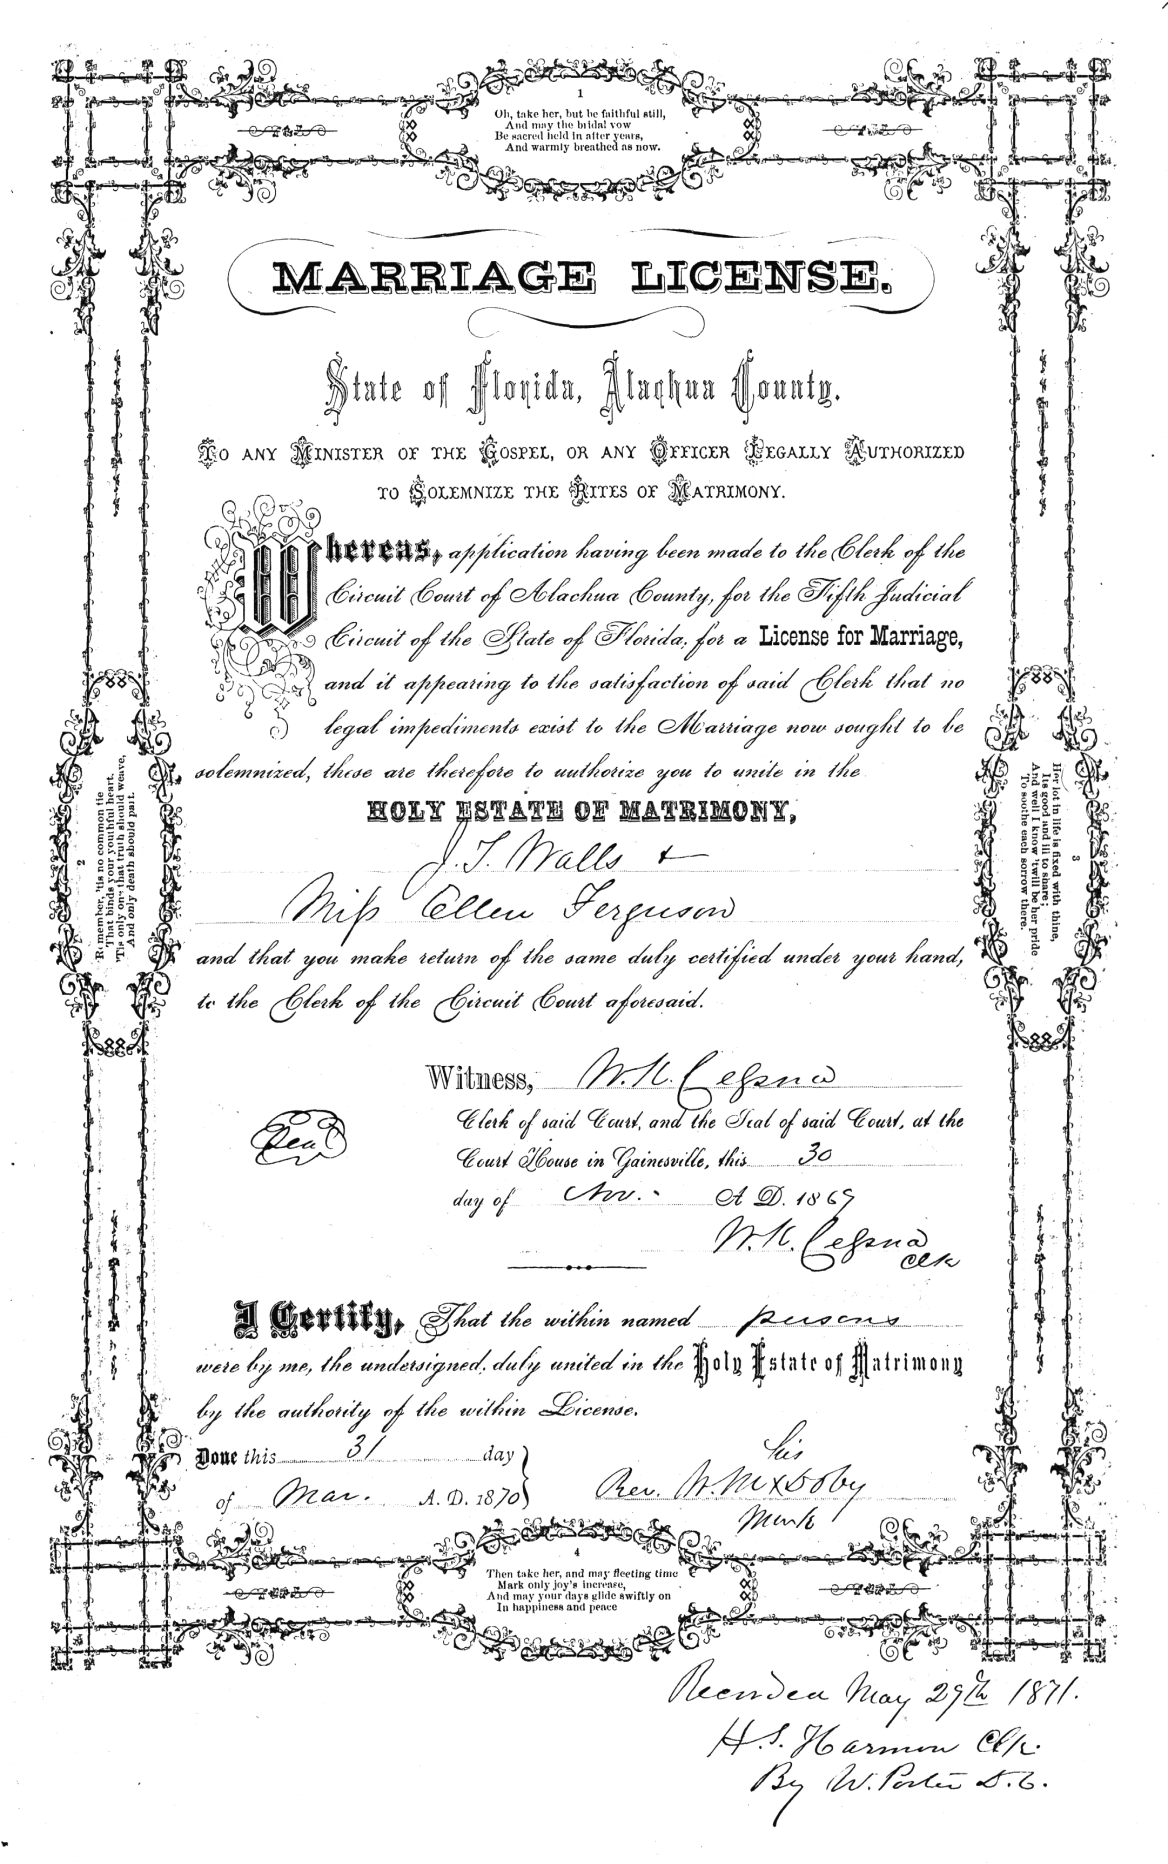 1
Oh, take her, but be faithful still,
And may the bridal vow
Be sacred held in after years,
And warmly breathed as now.
MARRIAGE LICENSE.
State of Florida, Alachua County.
TO ANY MINISTER OF THE GOSPEL, OR ANY OFFICER LEGALLY AUTHORIZED
TO SOLEMNIZE THE RITES OF MATRIMONY.
Whereas, application having been made to the Clerk of the
Circuit Court of Alachua County, for the Fifth Judicial
Circuit of the State of Florida, for a License for Marriage,
and it appearing to the satisfaction of said Clerk that no
legal impediments exist to the Marriage now sought to be
solemnized, these are therefore to authorize you to unite in the
HOLY ESTATE OF MATRIMONY,
J. T. Walls &
Miss Ellen Ferguson
and that you make return of the same duly certified under your hand,
to the Clerk of the Circuit Court aforesaid.
2
Remember, 'tis no common tie
That binds your youthful heart.
'Tis only one that truth should weave,
And only death should part.
3
Her lot in life is fixed with thine,
Its good and ill to share;
And well I know 'twill be her pride
To soothe each sorrow there.
Witness, W. K. Cessna
Seal
Clerk of said Court, and the Seal of said Court, at the
Court House in Gainesville, this 30
day of Nov. A. D. 1869
W. K. Cessna
Clk
I Certify, That the within named persons
were by me, the undersigned, duly united in the Holy Estate of Matrimony
by the authority of the within License.
Done this 31 day
of Mar. A. D. 1870
his
Rev. W. M X Doby
Mark
4
Then take her, and may fleeting time
Mark only joy's increase,
And may your days glide swiftly on
In happiness and peace
Recorded May 29th 1871.
H. S. Harmon Clk.
By W. Porter D. C.